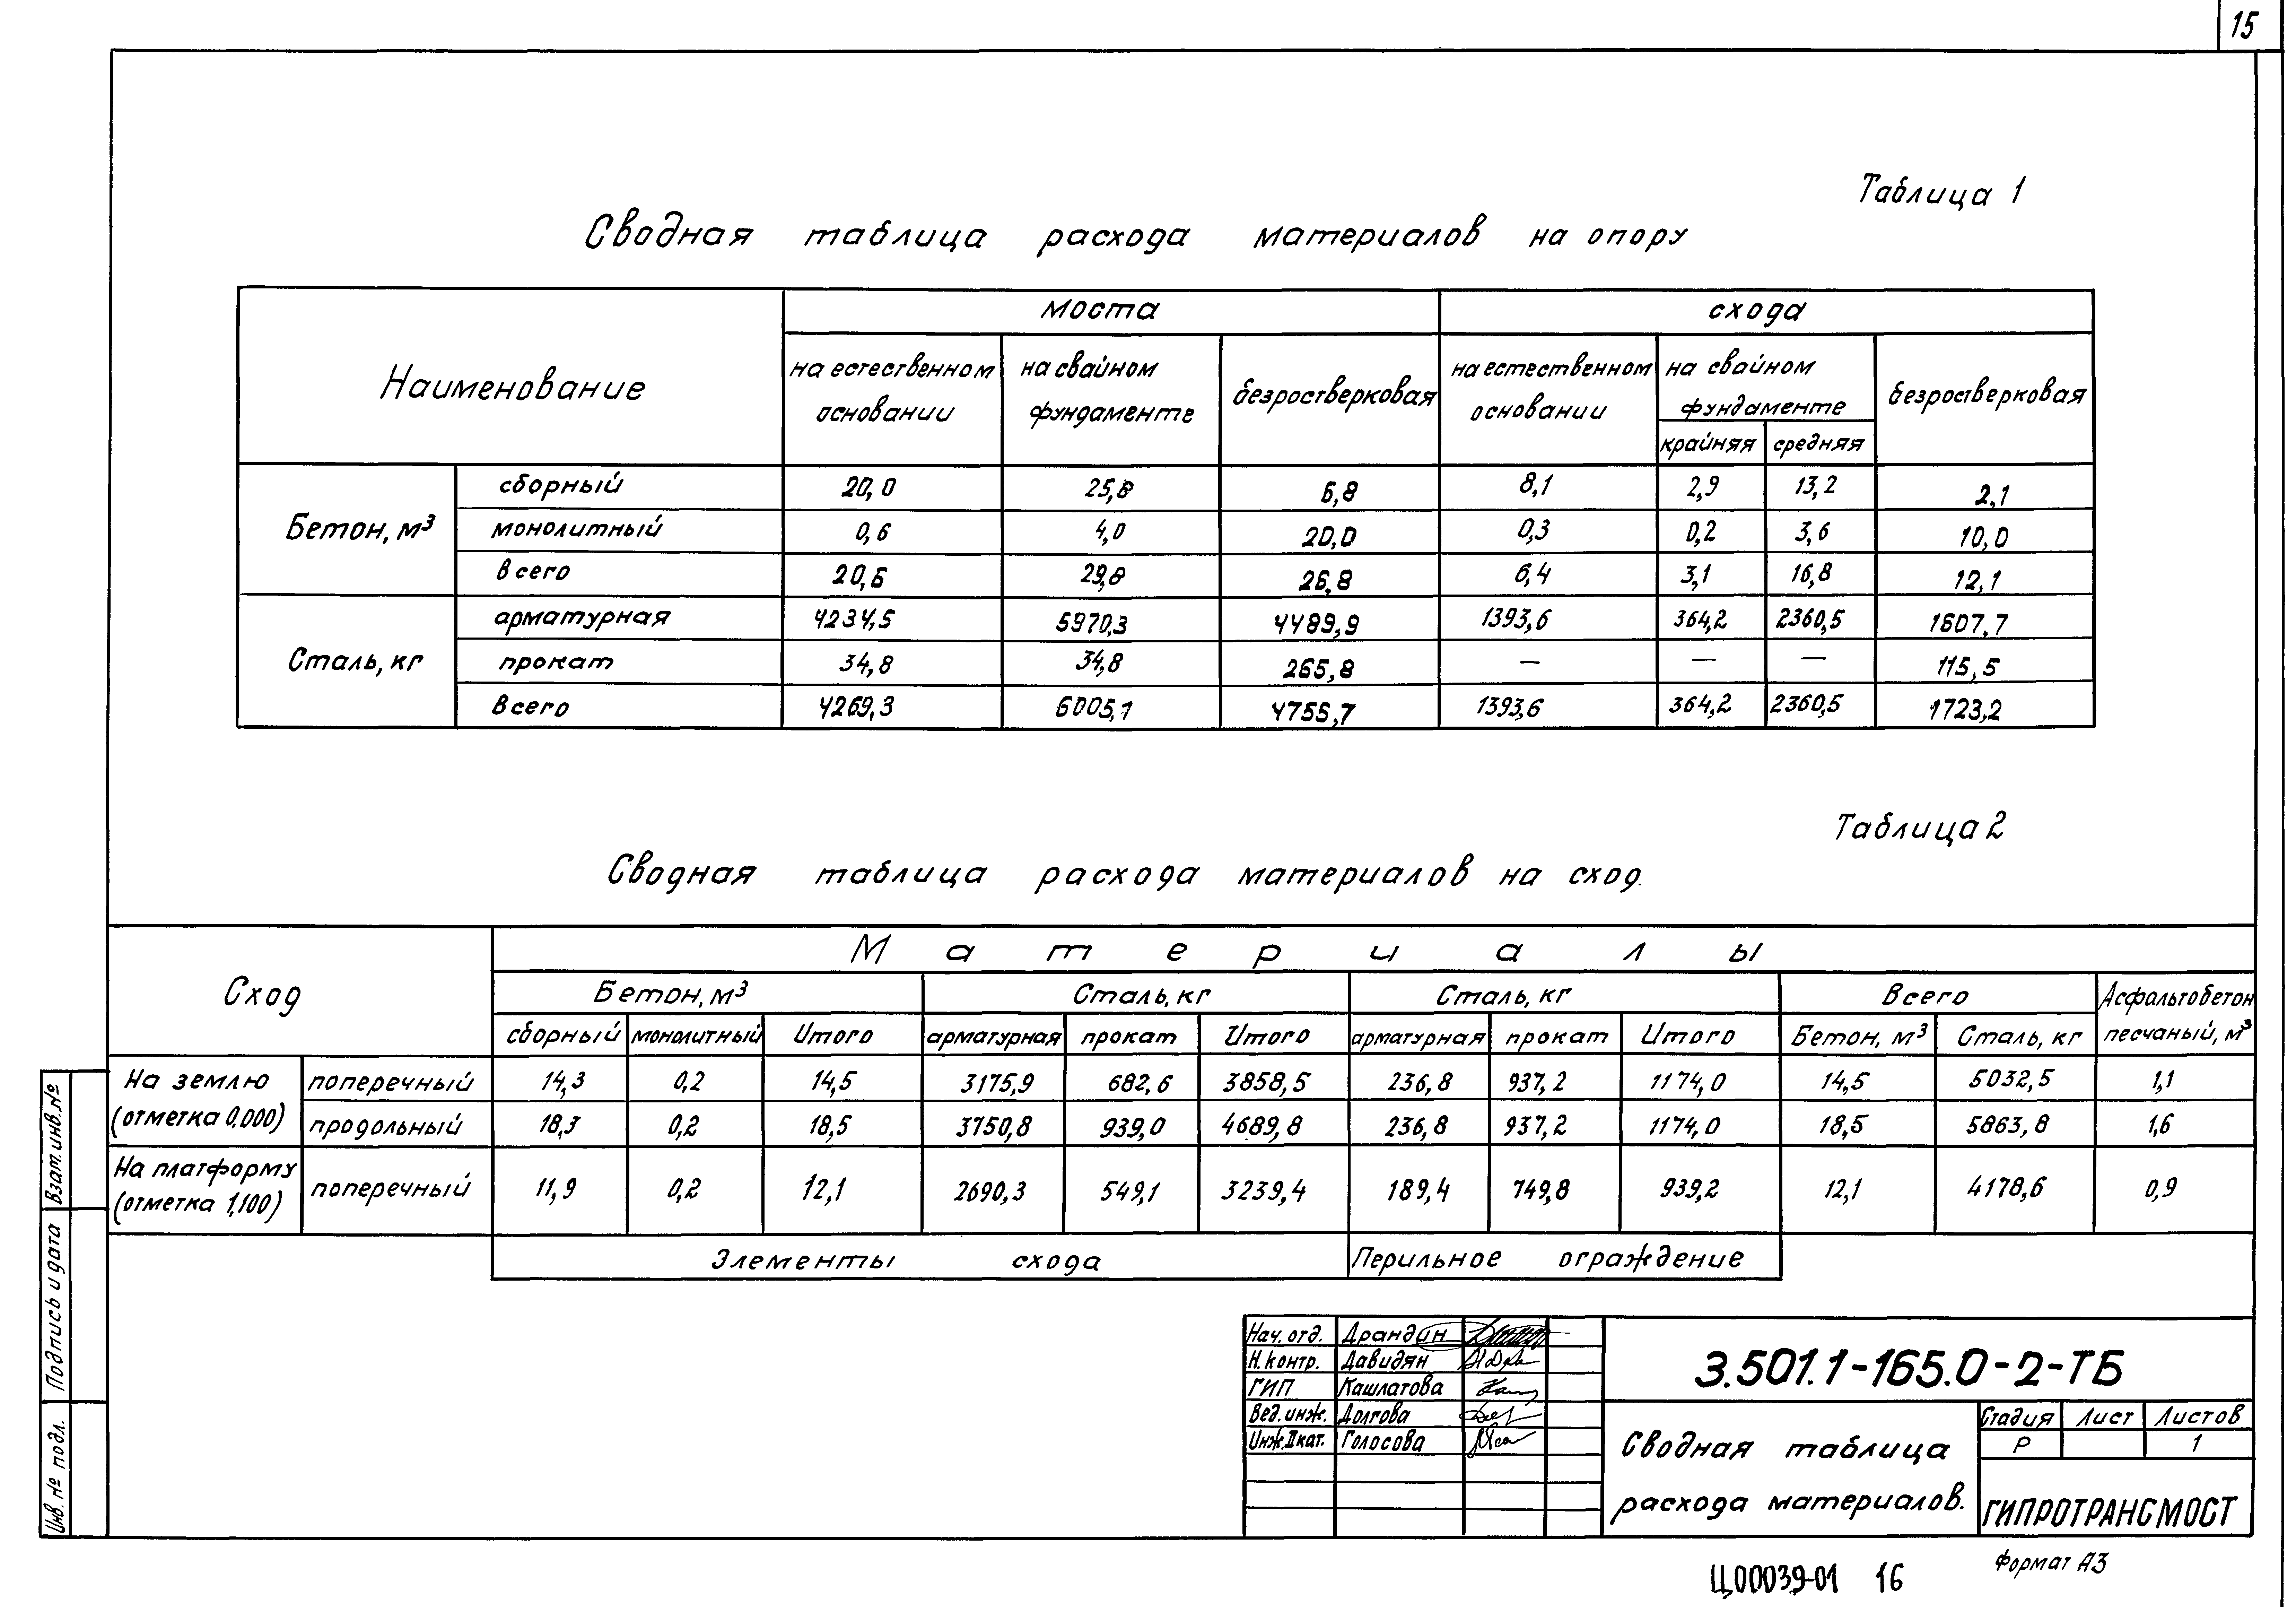 15
Таблица 1
Сводная таблица расхода материалов на опору
Наименование моста схода
на естественном основании на свайном фундаменте безростверковая на естественном основании на свайном фундаменте безростверковая
крайняя средняя
Бетон, м³ сборный 20,0 25,8 6,8 8,1 2,9 13,2 2,1
монолитный 0,6 4,0 20,0 0,3 0,2 3,6 10,0
всего 20,6 29,8 26,8 8,4 3,1 16,8 12,1
Сталь, кг арматурная 4234,5 5970,3 4489,9 1393,6 364,2 2360,5 1607,7
прокат 34,8 34,8 265,8 — — — 115,5
всего 4269,3 6005,1 4755,7 1393,6 364,2 2360,5 1723,2
Таблица 2
Сводная таблица расхода материалов на сход.
Сход Материалы
Бетон, м³ Сталь, кг Сталь, кг Всего Асфальтобетон песчаный, м³
сборный монолитный Итого арматурная прокат Итого арматурная прокат Итого Бетон, м³ Сталь, кг
На землю (отметка 0,000) поперечный 14,3 0,2 14,5 3175,9 682,6 3858,5 236,8 937,2 1174,0 14,5 5032,5 1,1
продольный 18,3 0,2 18,5 3750,8 939,0 4689,8 236,8 937,2 1174,0 18,5 5863,8 1,6
На платформу (отметка 1,100) поперечный 11,9 0,2 12,1 2690,3 549,1 3239,4 189,4 749,8 939,2 12,1 4178,6 0,9
Элементы схода Перильное ограждение
Взам. инв. №
Подпись и дата
Инв. № подл.
Нач. отд. Драндин
Н. контр. Давидян
ГИП Кашлатова
Вед. инж. Долгова
Инж. II кат. Голосова
3.501.1-165.0-2-ТБ
Сводная таблица
расхода материалов.
Стадия Лист Листов
Р 1
ГИПРОТРАНСМОСТ
Ц00039-01 16
Формат А3